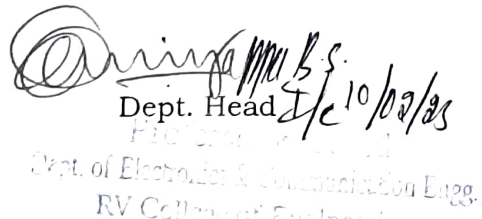 B.S.
Dept. Head I/c 10/02/23
Dept. of Electronics & Communication Engg.
RV College of